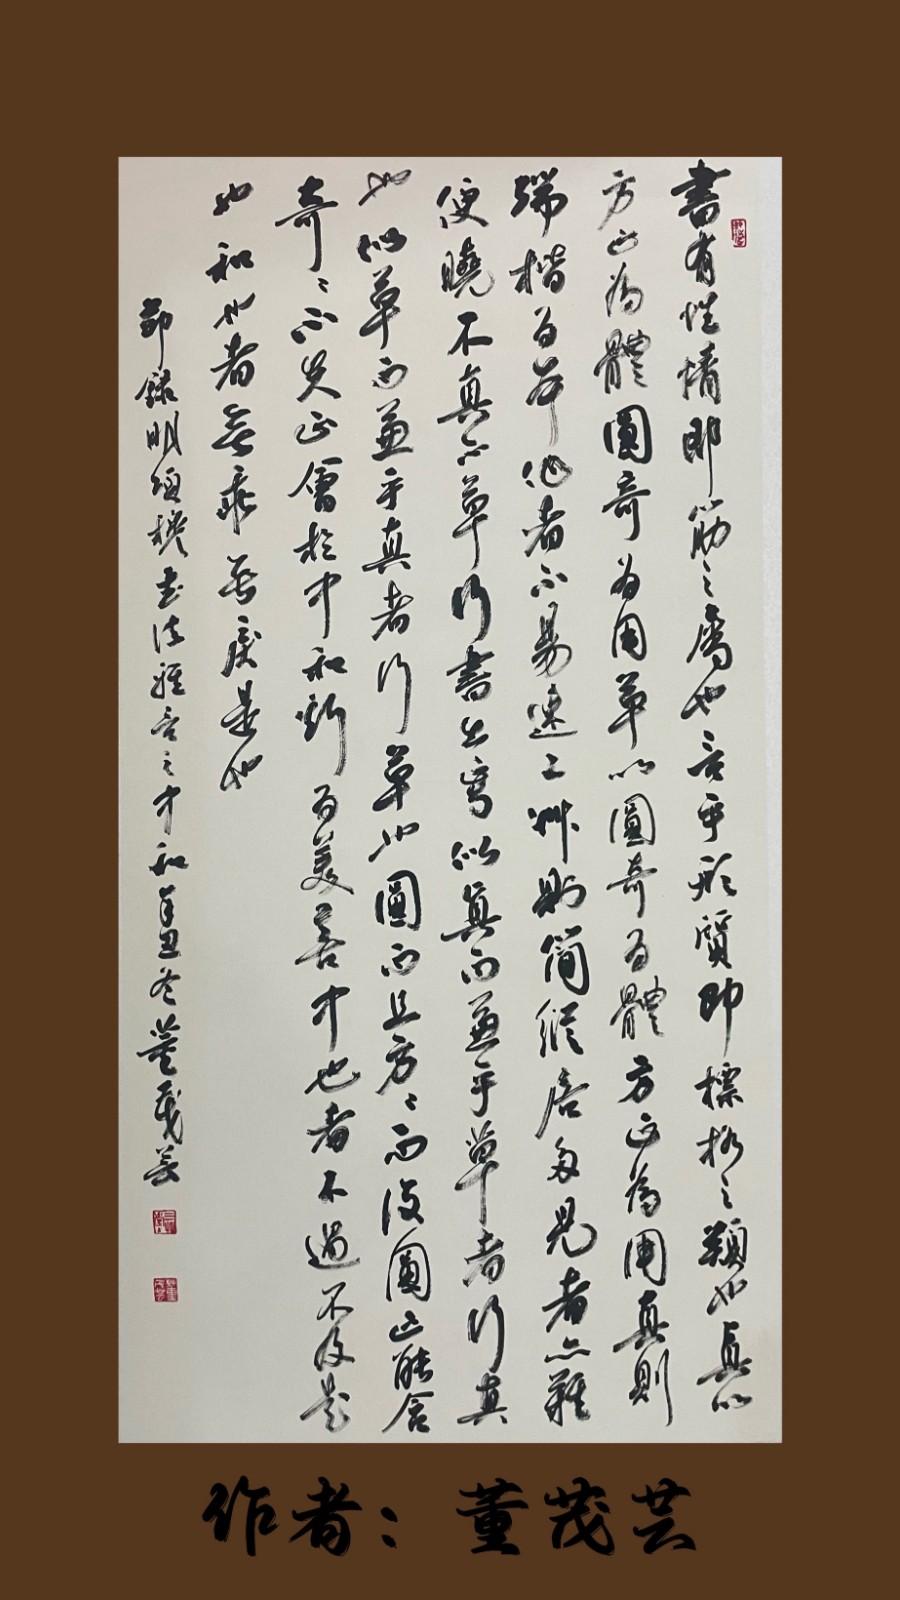 書有性情即筋之屬也言乎形質即標格之類也真以
方正為體圓奇為用草以圓奇為體方正為用真則
端楷為本作者不易速工艸則簡縱居多見者亦難
便曉不真不草行書出焉似真而兼乎草者行真
也似草而兼乎真者行草也圓而且方〻而復圓正能含
奇〻不失正會於中和斯為美善中也者不過不及是
也和也者無乖無戾是也
節錄明項穆書法雅言之中和辛丑冬董茂芸
作者：董茂芸